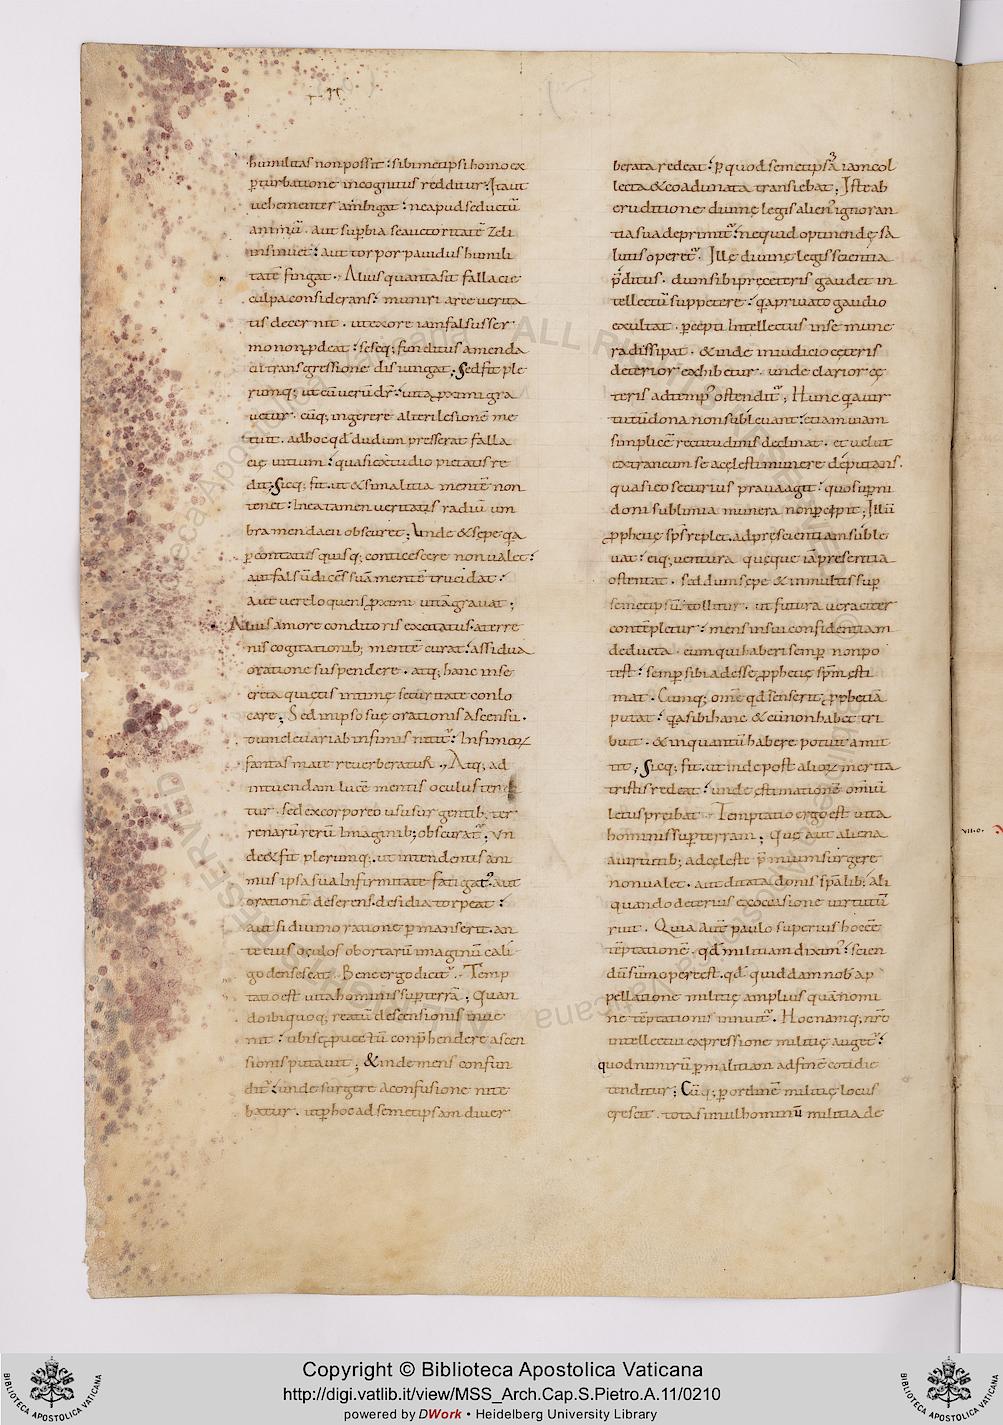 humilitas non possit : sibimetipsi homo ex
p̄turbatione incognitus redditur : Itaut
uehementer ambigat : ne apud seductū
animū . aut sup̄bia se auctoritatē zeli
insinuet : aut torpor pauidus humili
tatē fingat . Alius quanta sit fallacie
culpa considerans : muniri arce uerita
tis decernit . ut ex ore iam falsus ser
mo non p̄deat : seseq; funditus amenda
cii transgressione disiungat ; Sed fit ple
rumq; ut cū uerū dr̄ : uita p̄ximi gra
uetur . cūq; ingerere alteri lesionē me
tuit . ad hoc qd̄ dudum presserat falla
cię uitium : quasi ex studio pietatis re
dit ; Sicq; fit . ut & si malitia mentē non
tenet : In ea tamen ueritatis radiū um
bra mendacii obscuret ; Unde & sepe q̄a
p̄contatus quisq; conticescere non ualet :
aut falsū dicēs suā mentē trucidat :
Aut uere loquens p̄ximi uitā grauat ;
Alius amore conditoris excitatus . a terre
nis cogitationib; mentē curat : assidua
oratione suspendere . atq; hanc in se
creta quietis intimę securitate conlo
care ; Sed in ipso suę orationis ascensu .
dum eleuari ab infimis nititr̄ : Infimoꝝ
fantasmate reuerberatur ., Atq; ad
intuendam lucē mentis oculus tendi
tur . sed ex corporeo usu surgentib; ter
renarū rerū Imaginib; obscuratr̄ ; Un
de & fit plerumq; . ut intendentis ani
mus ipsa sua Infirmitate fatigatr̄ . aut
orationē deserens . desidia torpeat :
aut si diu in oratione p̄manserit . an
te eius oculos obortarū imaginū cali
go densescat . Bene ergo dicitr̄ . Temp
tatio est uita hominis sup̄ terrā ; Quan
do ibi quoq; reatū descensionis inue
nit : ubi se p̄uectū conp̄hendere ascen
sionis putauit ; & inde mens confun
ditr̄ : unde surgere a confusione nite
batur . ut p̄ hoc ad semetipsam diuer
berata redeat : p̄ quod semetipsā iam col
lecta & coadunata transiebat ; Iste ab
eruditione diuinę legis alien' ignoran
tia sua deprimitr̄ : ne quid optinendę sa
lutis operetr̄ . Ille diuinę legis scientia
p̄ditus . dum sibi pre ceteris gaudet in
tellectū suppetere : q̄a priuato gaudio
exultat . p̄cepti Intellectus in se mune
ra dissipat . & inde in iudicio ceteris
deterior exhibetur . unde clarior cę
teris ad temp' ostenditr̄ ; Hunc q̄a uir
tutū dona non subleuant : etiam uiam
simplicē rectitudinis declinat . et uelut
extraneum se a celesti munere deputans .
quasi eo securius praua agit : quo sup̄ni
doni sublimia munera non p̄cepit ; Illū
p̄phetię sp̄s replet . ad pręscientiam suble
uat : eiq; uentura quęque iā presentia
ostentat . sed dum sepe & in multis sup̄
semetipsū tollitur . ut futura ueraciter
contēpletur : mens in sui confidentiam
deducta . eum qui haberi semp̄ non po
test : semp̄ sibi adesse p̄phetię sp̄m esti
mat . Cumq; omē qd̄ senserit p̄phetiā
putat : q̄a sibi hanc & cū non habet tri
buit . & in quantū habere potuit amit
tit ; Sicq; fit . ut inde post alioꝝ merita
tristis redeat : unde estimationē omiū
letus preibat . Temptatio ergo est uita
hominis sup̄ terram ; Quę aut aliena
a uirtutib; ad cęleste p̄mium surgere
non ualet . aut ditata donis sp̄alib; ali
quando deterius ex occasione uirtutū
ruit . Quia autē paulo superius hoc ēē
tēptationē . qd̄ militiam diximꝰ : scien
dū sūmopere est . qd̄ quiddam nob' ap
pellatione militię amplius quā nomi
ne tēptationis innuitr̄ . Hoc namq; nr̄o
intellectui expressione militię augetr̄ :
quod nimirū p̄ malitiam ad finē cotidie
tenditur ; Cūq; p̄ ordinē militię locus
crescit . tota simul hominū militia de
Copyright © Biblioteca Apostolica Vaticana
http://digi.vatlib.it/view/MSS_Arch.Cap.S.Pietro.A.11/0210
powered by DWork • Heidelberg University Library
BIBLIOTECA APOSTOLICA VATICANA
BIBLIOTECA APOSTOLICA VATICANA